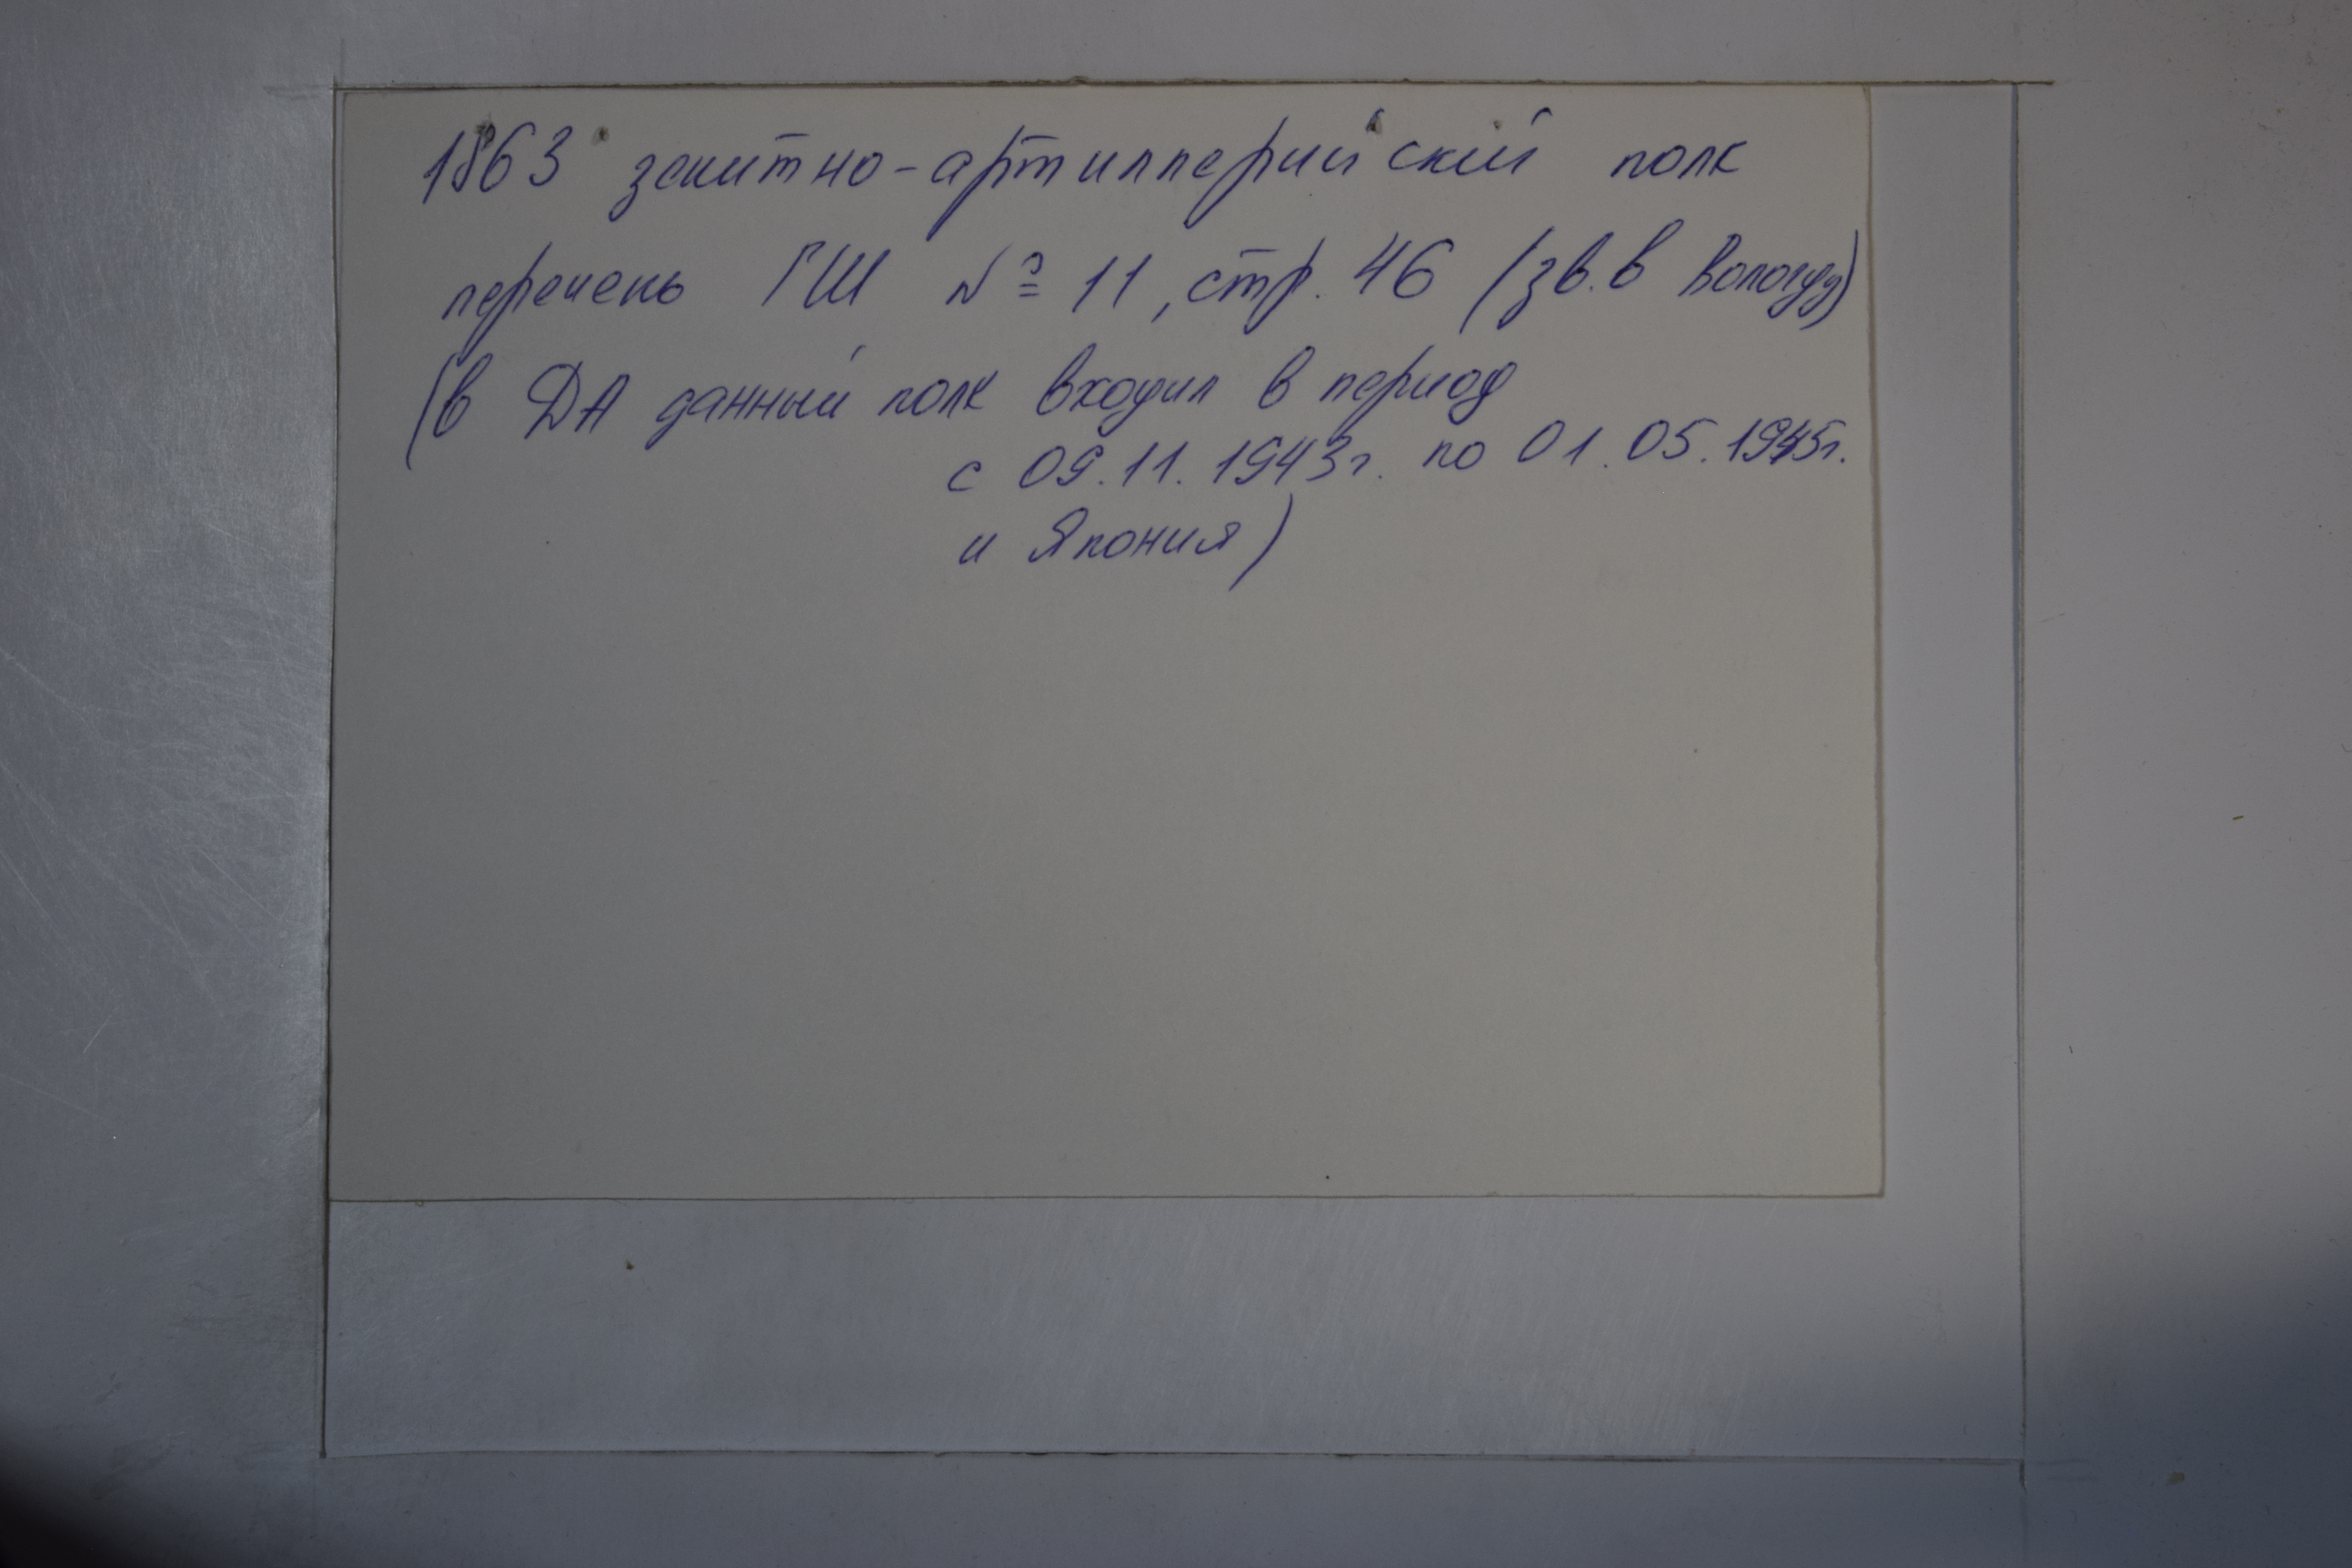 1863 зенитно-артиллерийский полк
перечень ГШ № 11, стр. 46 (зв. в Вологду)
(в ДА данный полк входил в период
с 09.11.1943г. по 01.05.1945г.
и Япония)